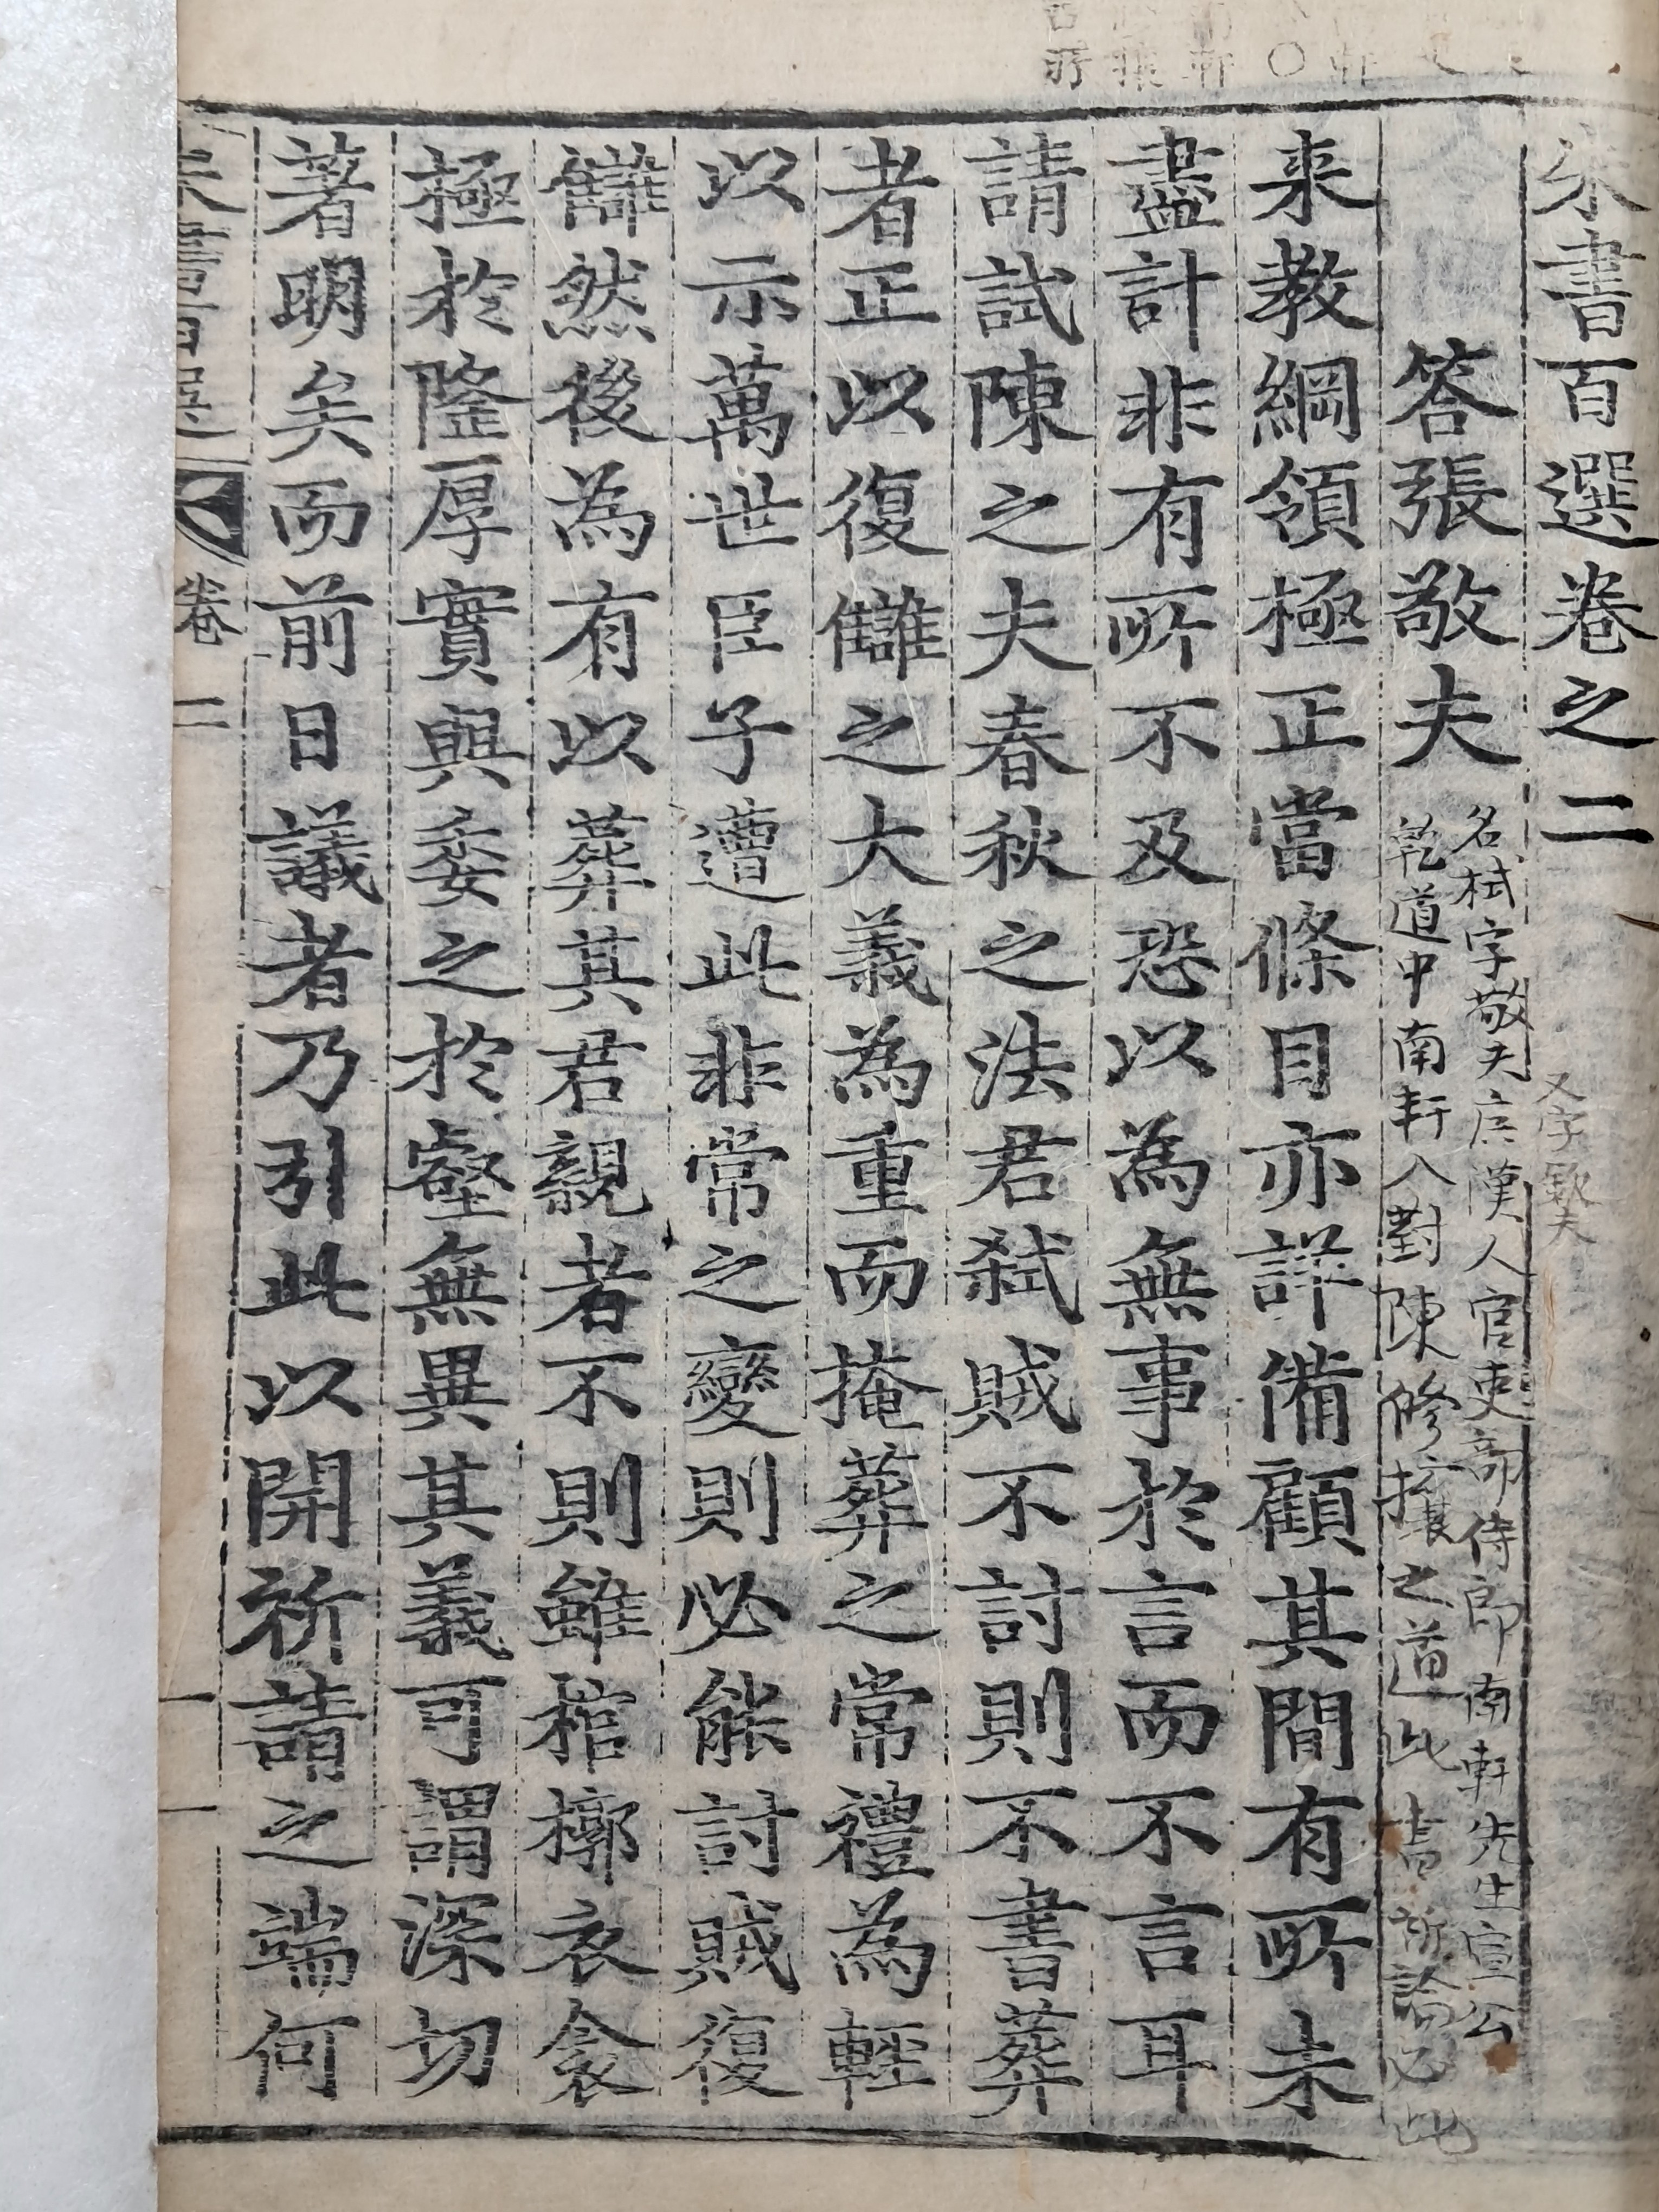 朱書百選卷之二
又字欽夫
答張敬夫
名栻字敬夫広漢人官吏部侍郎南軒先生宣公
乾道中南軒入對陳修攘之道此書所論止此
来教綱領極正當條目亦詳備顧其間有所未
盡計非有所不及恐以為無事於言而不言耳
請試陳之夫春秋之法君弑賊不討則不書葬
者正以復讎之大義為重而掩葬之常禮為輕
以示萬世臣子遭此非常之變則必能討賊復
讎然後為有以葬其君親者不則雖棺槨衣衾
極於隆厚實與委之於壑無異其義可謂深切
著明矣而前日議者乃引此以開祈請之端何
朱書百選
卷二
一